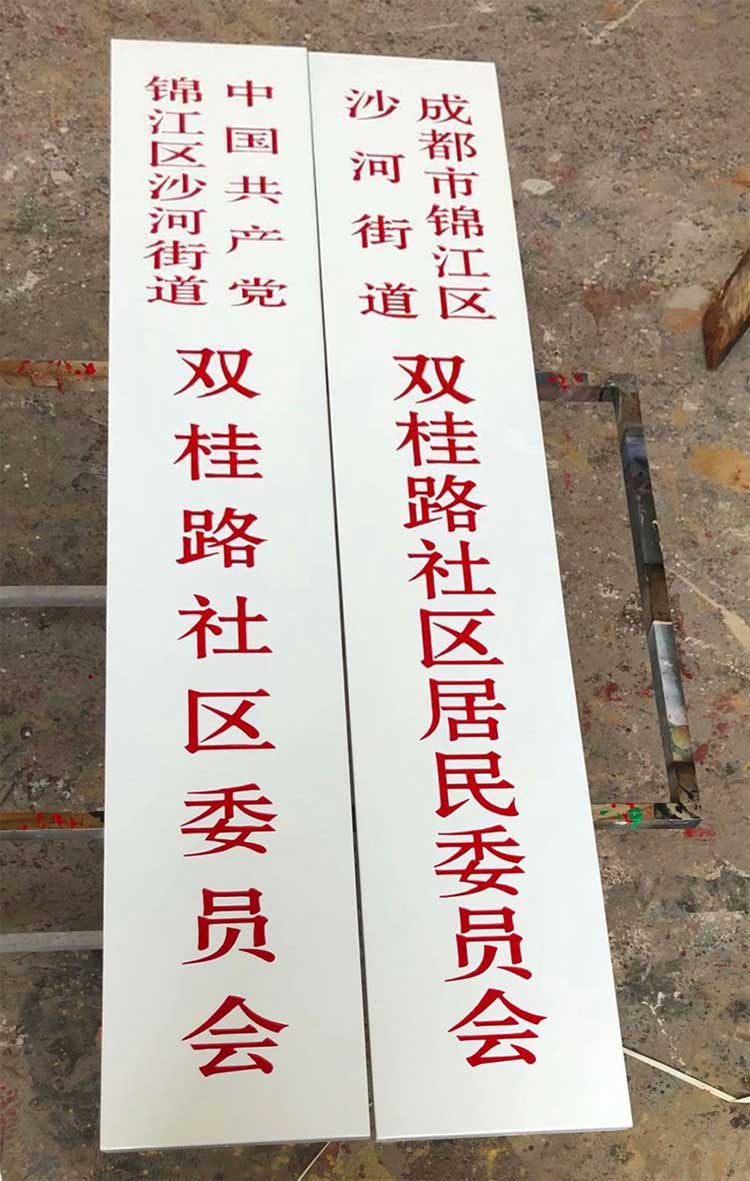 中国共产党
锦江区沙河街道
双桂路社区委员会
成都市锦江区
沙河街道
双桂路社区居民委员会